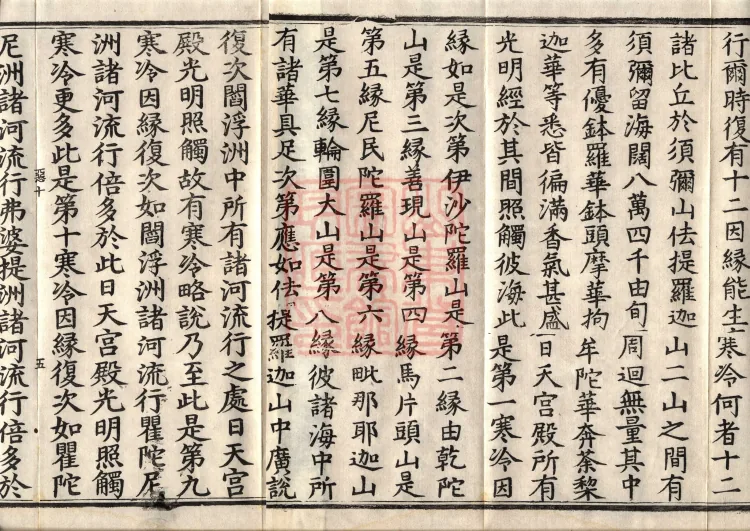 行爾時復有十二因緣能生寒冷何者十二
諸比丘於須彌山佉提羅迦山二山之間有
須彌留海闊八萬四千由旬周迴無量其中
多有優鉢羅華鉢頭摩華拘牟陀華奔荼棃
迦華等悉皆徧滿香氣甚盛日天宮殿所有
光明經於其間照觸彼海此是第一寒冷因
緣如是次第伊沙陀羅山是第二緣由乾陀
山是第三緣善現山是第四緣馬片頭山是
第五緣尼民陀羅山是第六緣毗那耶迦山
是第七緣輪圍大山是第八緣彼諸海中所
有諸華具足次第應如佉提羅迦山中廣說
復次閻浮洲中所有諸河流行之處日天宮
殿光明照觸故有寒冷略說乃至此是第九
寒冷因緣復次如閻浮洲諸河流行瞿陀尼
洲諸河流行倍多於此日天宮殿光明照觸
寒冷更多此是第十寒冷因緣復次如瞿陀
五
尼洲諸河流行弗婆提洲諸河流行倍多於